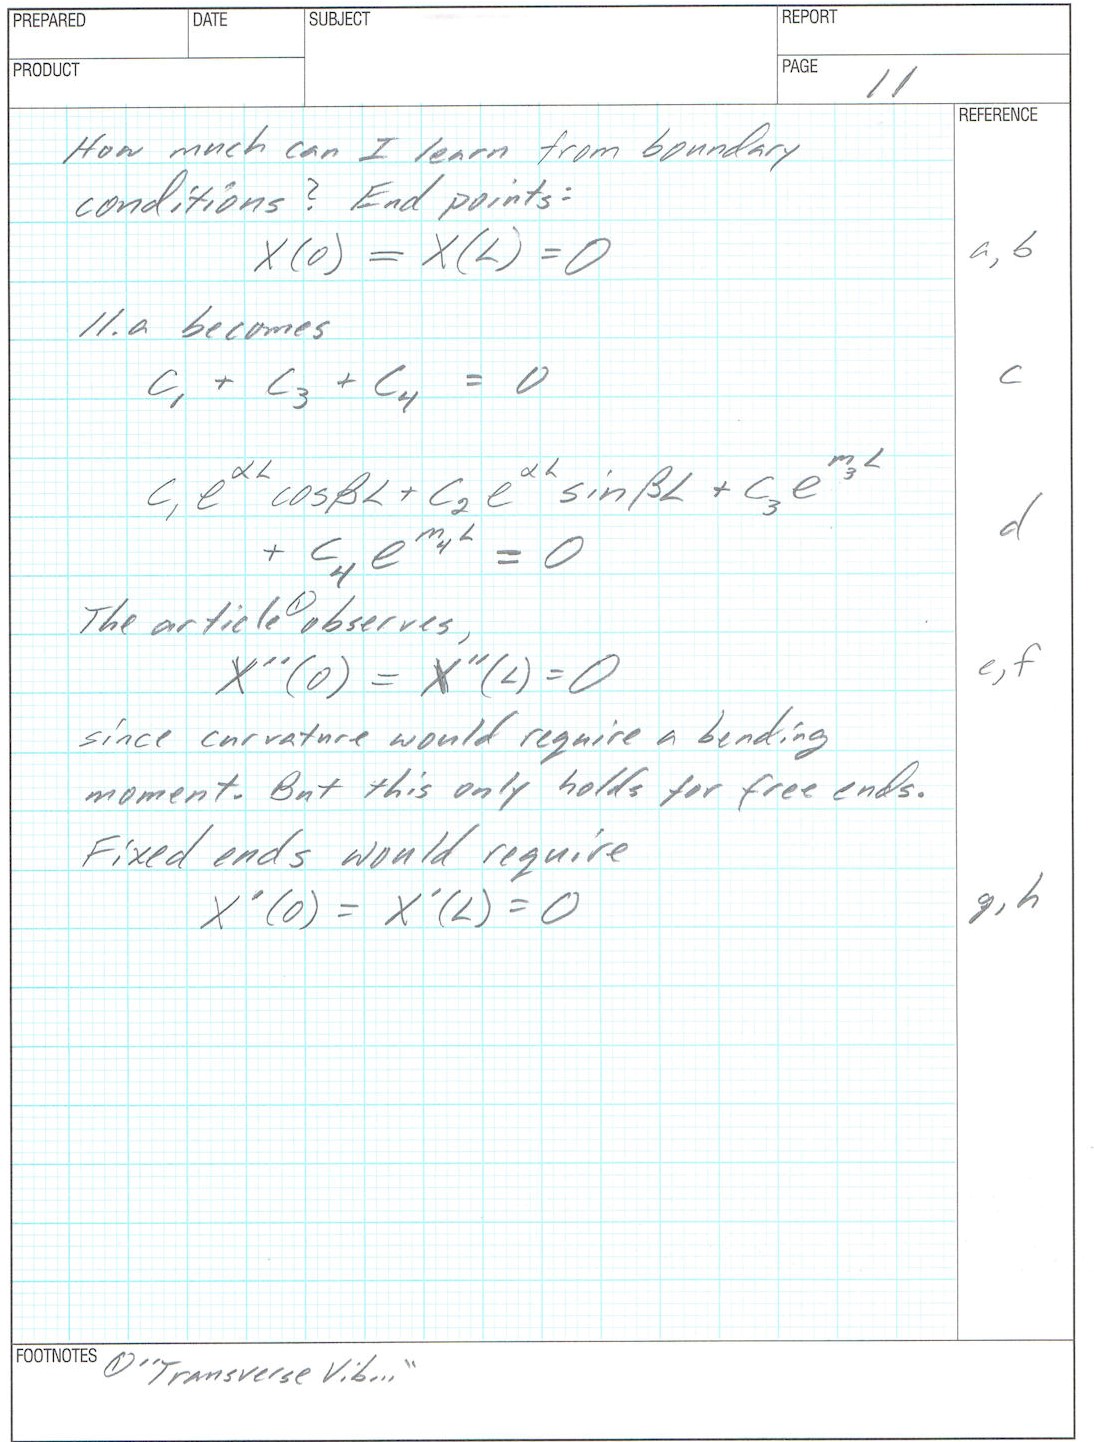 PREPARED
DATE
SUBJECT
REPORT
PRODUCT
PAGE 11
REFERENCE
How much can I learn from boundary
conditions? End points:
X(0) = X(L) = 0 a, b
11.a becomes
C₁ + C₃ + C₄ = 0 c
C₁ e^αL cos βL + C₂ e^αL sin βL + C₃ e^m₃L
+ C₄ e^m₄L = 0 d
The article① observes,
X''(0) = X''(L) = 0 e, f
since curvature would require a bending
moment. But this only holds for free ends.
Fixed ends would require
X'(0) = X'(L) = 0 g, h
FOOTNOTES ① "Transverse Vib..."